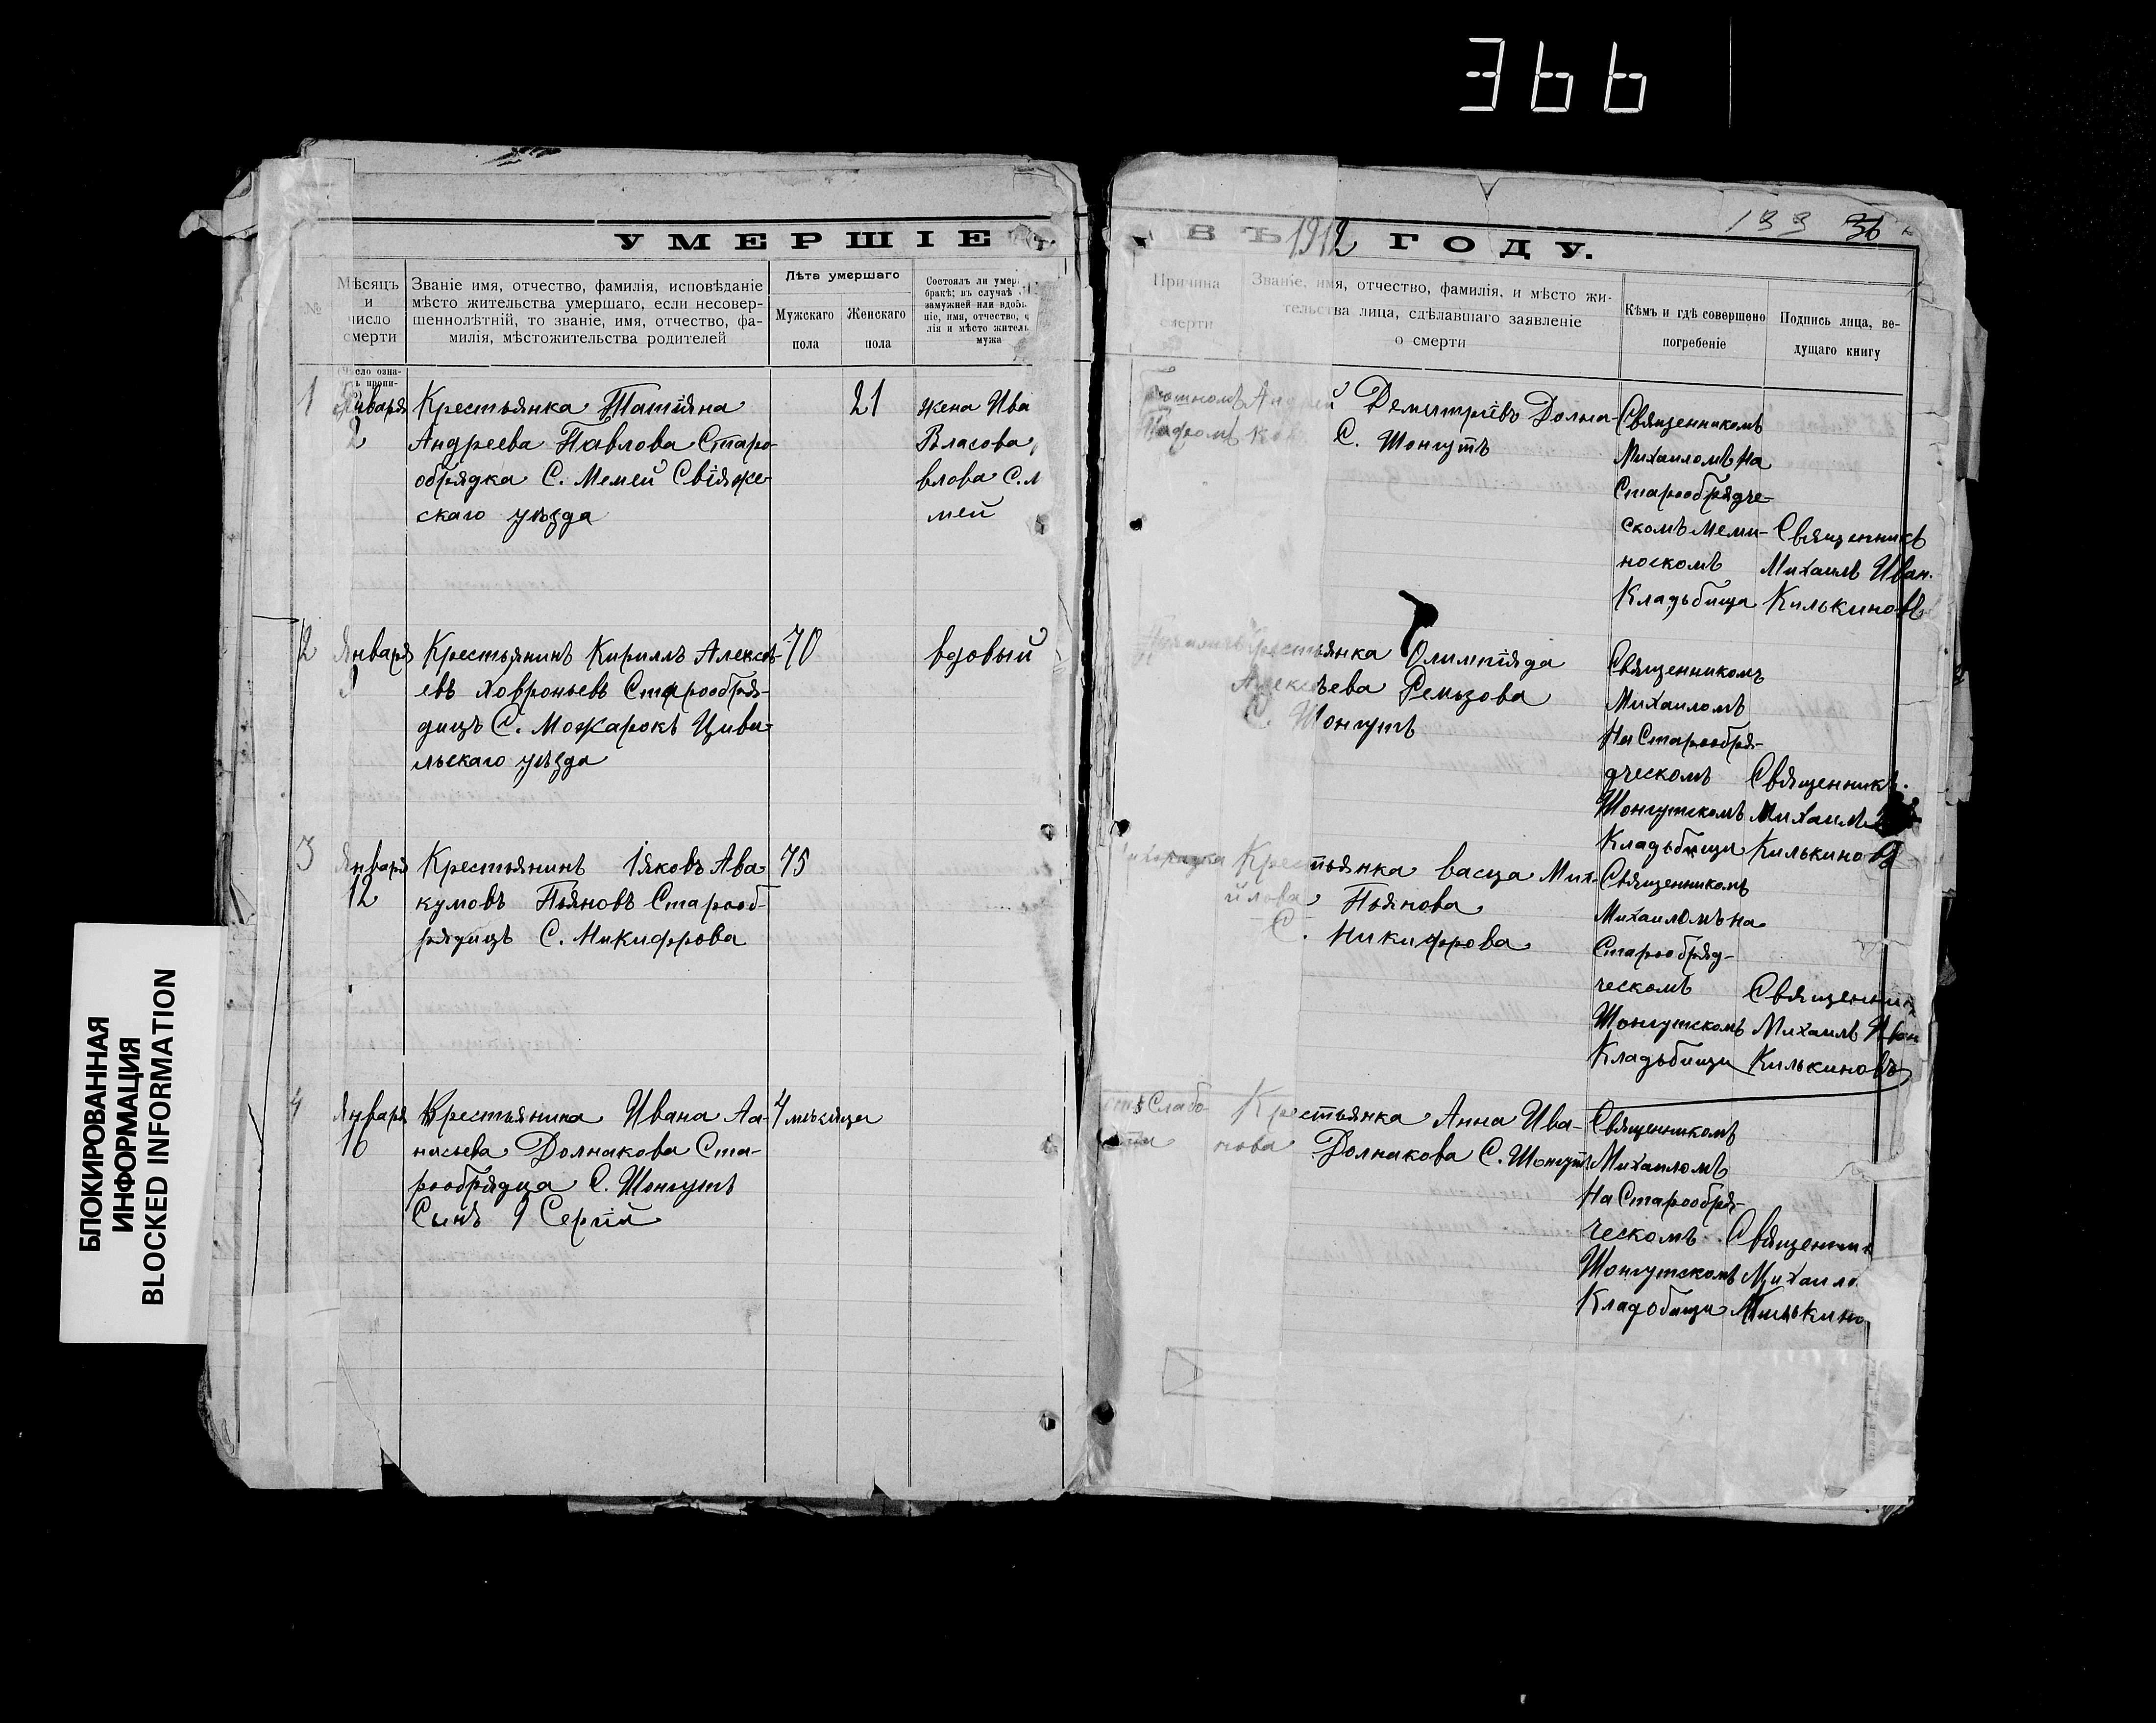 366
133 36
УМЕРШІЕ
ВЪ 1912 ГОДУ.
№
Мѣсяцъ
и
число
смерти
Званіе имя, отчество, фамилія, исповѣданіе
мѣсто жительства умершаго, если несовер-
шеннолѣтній, то званіе, имя, отчество, фа-
милія, мѣстожительства родителей
Лѣта умершаго
Мужскаго
пола
Женскаго
пола
Состоялъ ли умер
бракѣ; въ случаѣ
замужней или вдовы
ніе, имя, отчество,
лія и мѣсто житель
мужа
Причина
смерти
Званіе, имя, отчество, фамилія, и мѣсто жи-
тельства лица, сдѣлавшаго заявленіе
о смерти
Кѣмъ и гдѣ совершено
погребеніе
Подпись лица, ве-
дущаго книгу
1
Января
2
Крестьянка Татіяна
Андреева Павлова Старо-
обрядка С. Мемей Свіяже
скаго уѣзда
21
жена Ива
Власова
влова С. М
мей
Демитріевъ Долна-
С. Шонгутъ
Священникомъ
Михаиломъ На
Старообрядче-
скомъ Меми-
носкомъ
Кладьбища
Священникъ
Михаилъ Иван.
Килькиновъ
2
Января
Крестьянинъ Кирилъ Алексѣ-
евъ Ховроньевъ Старообря-
дицъ С. Можарокъ Циви
льскаго уѣзда
70
вдовый
Крестьянка Олимпіяда
Алексѣева Ремзова
С. Шонгутъ
Священникомъ
Михаиломъ
На Старообря-
дческомъ
Шонгутскомъ
Кладьбищи
Священникъ.
Михаилъ
Килькиновъ
3
Января
12
Крестьянинъ Іяковъ Ава
кумовъ Пьяновъ Старооб-
рядицъ С. Микифрова
75
Крестьянка васца Миха-
йлова Пьянова
С. Никифрова
Священникомъ
Михаиломъ на
Старообряд-
ческомъ
Шонгутскомъ
Кладьбищи
Священник
Михаилъ Иван
Килькиновъ
4
Января
16
Крестьянина Ивана Аа-
насьева Долнакова Ста-
рообрядца С. Шонгутъ
Сынъ Сергій
4 мѣсяца
Слабо-
Крестьянка Анна Ива-
нова Долнакова С. Шонгутъ
Священникомъ
Михаиломъ
На Старообря-
ческомъ
Шонгутскомъ
Кладобищи
Священни
Михаило
Килькино
БЛОКИРОВАННАЯ
ИНФОРМАЦИЯ
BLOCKED INFORMATION